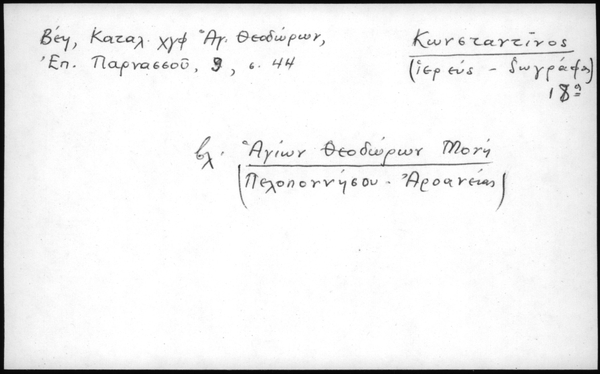 Βέη, Καταλ. χγφ Ἁγ. Θεοδώρων,
Ἐπ. Παρνασσοῦ, 9, σ. 44
Κωνσταντῖνος
(ἱερεύς - ζωγράφος)
18ος
βλ. Ἁγίων Θεοδώρων Μονή
(Πελοποννήσου - Ἀροανείας)